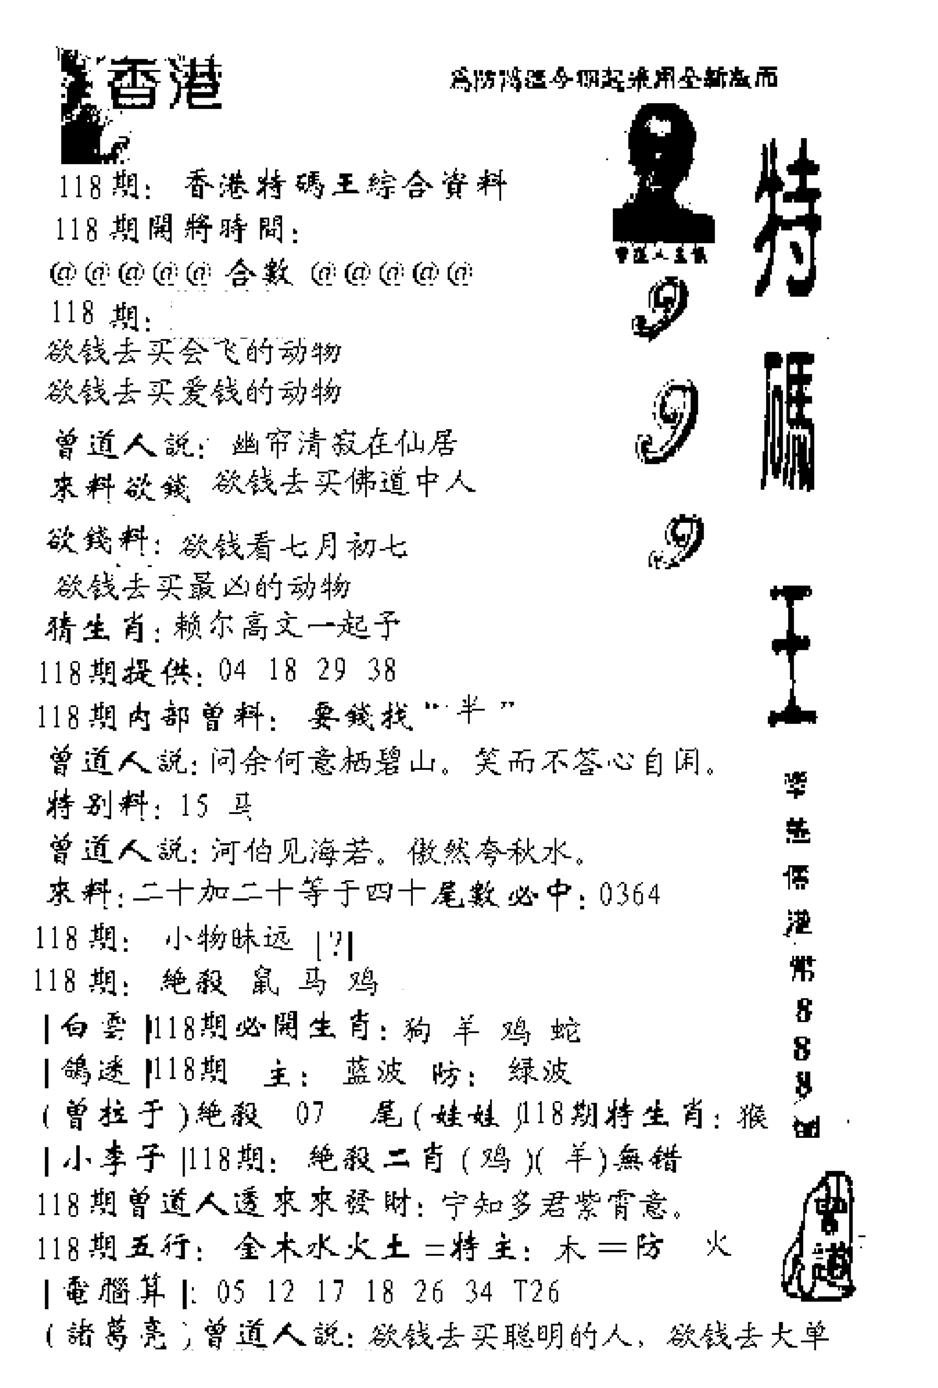 香港
118期: 香港特碼王綜合資料
118期開將時間:
@@@@@ 合數 @@@@@
118 期:
欲钱去买会飞的动物
欲钱去买爱钱的动物
曾道人説: 幽帘清寂在仙居
來料欲錢 欲钱去买佛道中人
欲錢料: 欲钱看七月初七
欲钱去买最凶的动物
猜生肖: 赖尔高文一起予
118期提供: 04 18 29 38
118期内部曾料: 要錢找“半”
曾道人説: 问余何意栖碧山。笑而不答心自闲。
特别料: 15 马
曾道人説: 河伯见海若。傲然夸秋水。
來料: 二十加二十等于四十尾數必中: 0364
118期: 小物昧远 |?|
118期: 絶殺 鼠 马 鸡
|白雲|118期必開生肖: 狗 羊 鸡 蛇
|鴿迷|118期 主: 蓝波 防: 绿波
(曾拉于)絶殺 07 尾(娃娃)118期特生肖: 猴
|小李子|118期: 絶殺二肖(鸡)(羊)無錯
118期曾道人透來來發財: 宁知多君紫霄意。
118期五行: 金木水火土=特主: 木=防 火
|電腦算|: 05 12 17 18 26 34 T26
(諸葛亮)曾道人説: 欲钱去买聪明的人，欲钱去大单
9
9
9
特
碼
王
港
幣
8
8
8
曾道